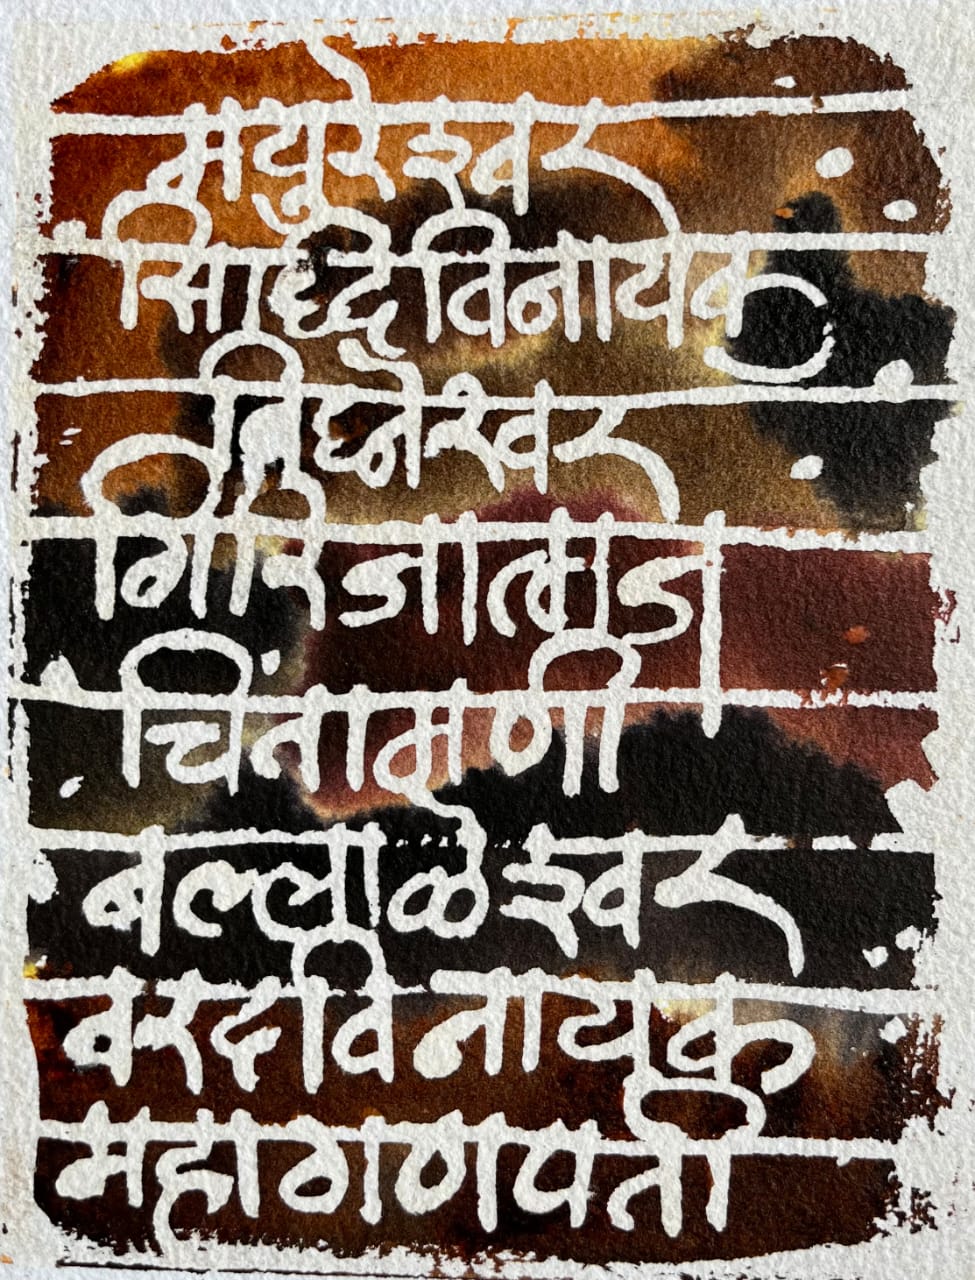 मयुरेश्वर
सिध्दिविनायक
विघ्नेश्वर
गिरिजात्मज
चिंतामणी
बल्लाळेश्वर
वरदविनायक
महागणपती